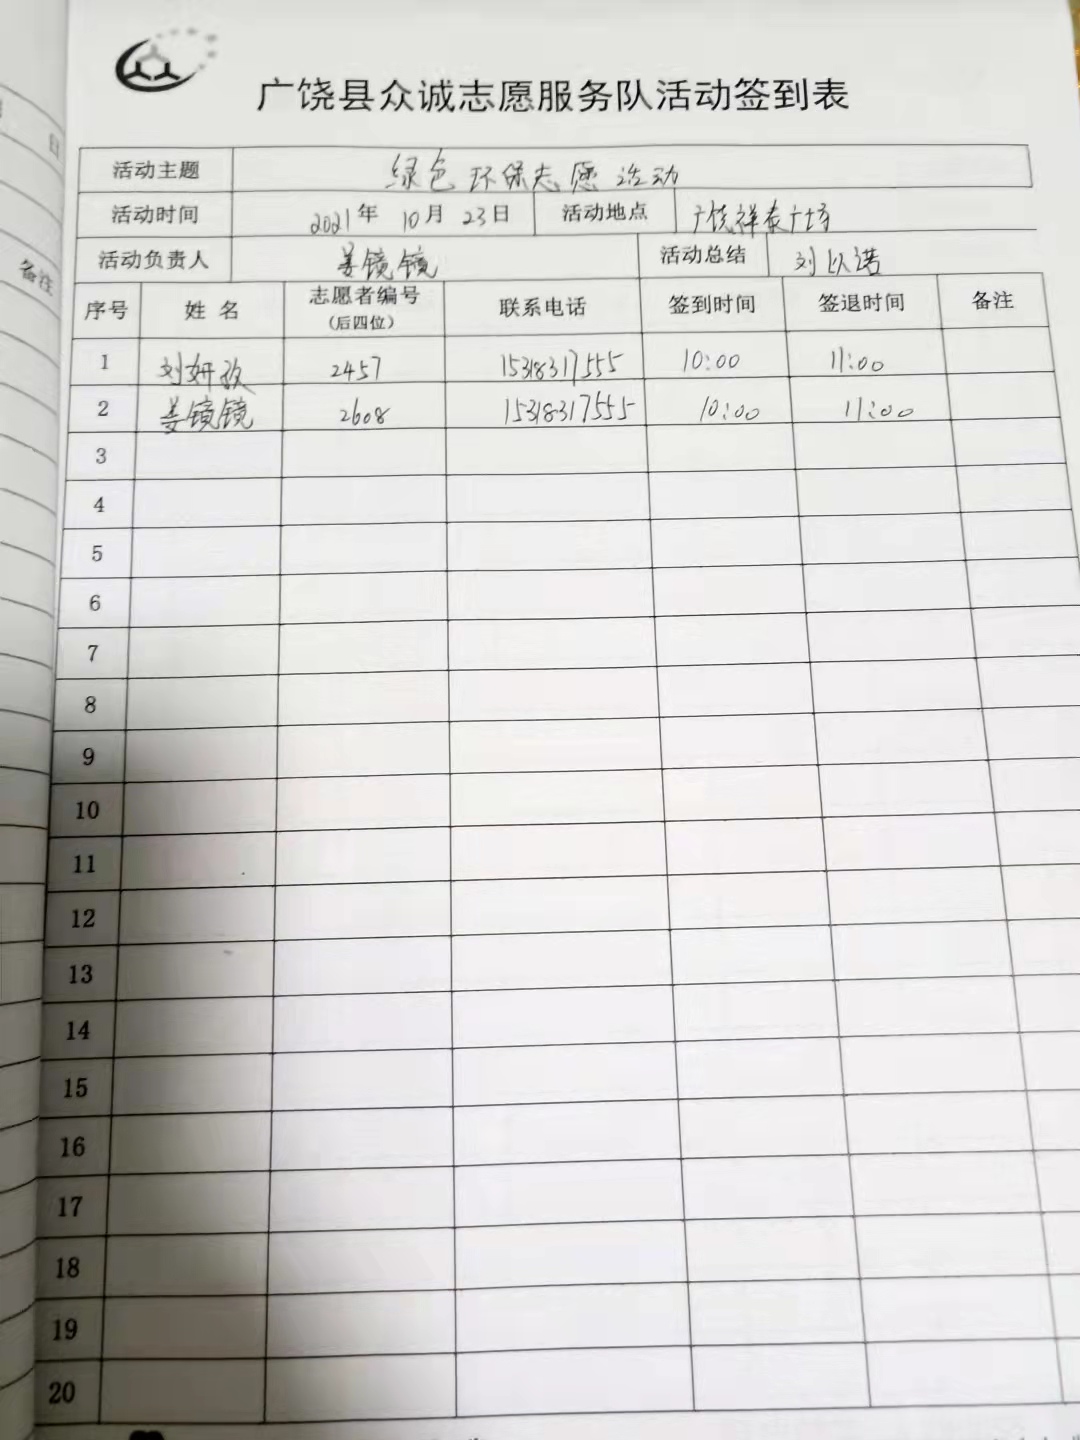 广饶县众诚志愿服务队活动签到表
活动主题 绿色环保志愿活动
活动时间 2021年 10月 23日 活动地点 广饶祥泰广场
活动负责人 姜镜镜 活动总结 刘以诺
序号 姓名 志愿者编号（后四位） 联系电话 签到时间 签退时间 备注
1 刘妍孜 2457 15318317555 10:00 11:00
2 姜镜镜 2608 15318317555 10:00 11:00
3
4
5
6
7
8
9
10
11
12
13
14
15
16
17
18
19
20
日
备注